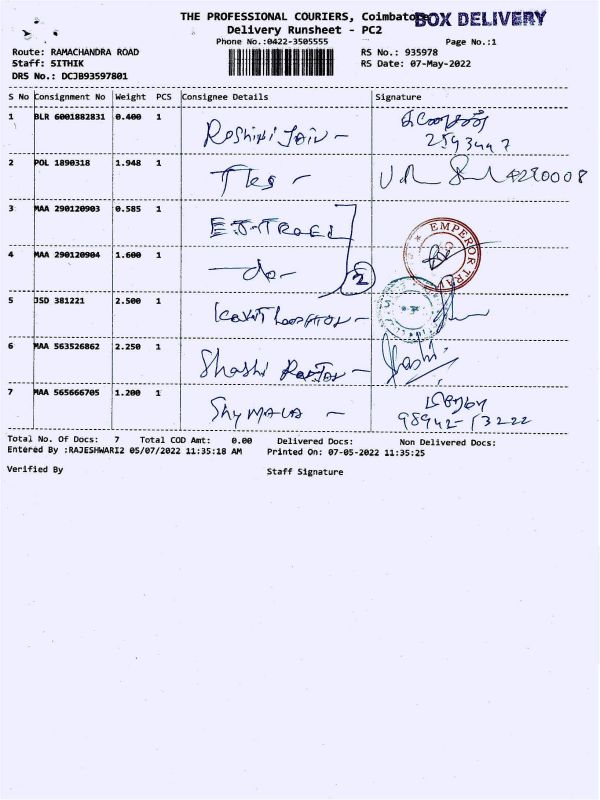 THE PROFESSIONAL COURIERS, Coimbatore
BOX DELIVERY
Delivery Runsheet - PC2
Phone No.:0422-3505555
Page No.:1
Route: RAMACHANDRA ROAD
RS No.: 935978
Staff: SITHIK
RS Date: 07-May-2022
DRS No.: DCJB93597801
S No Consignment No Weight PCS Consignee Details Signature
1 BLR 6001882831 0.400 1 Roshini Jain -
2 POL 1890318 1.948 1
4220008
3 MAA 290120903 0.585 1
EMPEROR
4 MAA 290120904 1.600 1 -do-
2
5 JSD 381221 2.500 1
6 MAA 563526862 2.250 1 Shashi
Shashi
7 MAA 565666705 1.200 1 Shymala -
98942-13222
Total No. Of Docs: 7 Total COD Amt: 0.00 Delivered Docs: Non Delivered Docs:
Entered By :RAJESHWARI2 05/07/2022 11:35:18 AM Printed On: 07-05-2022 11:35:25
Verified By Staff Signature